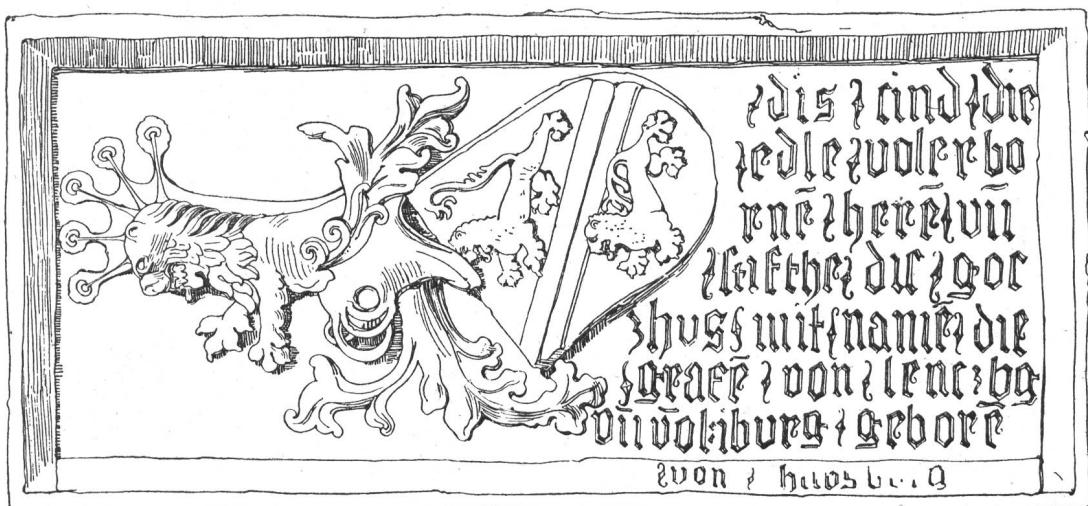 dis sind die
edle volerbo
rnē herē vn̄
stifther dis goc
zhus mit namē die
grafē von lenczbg
vn̄ vō kiburg geborē
von habsburg